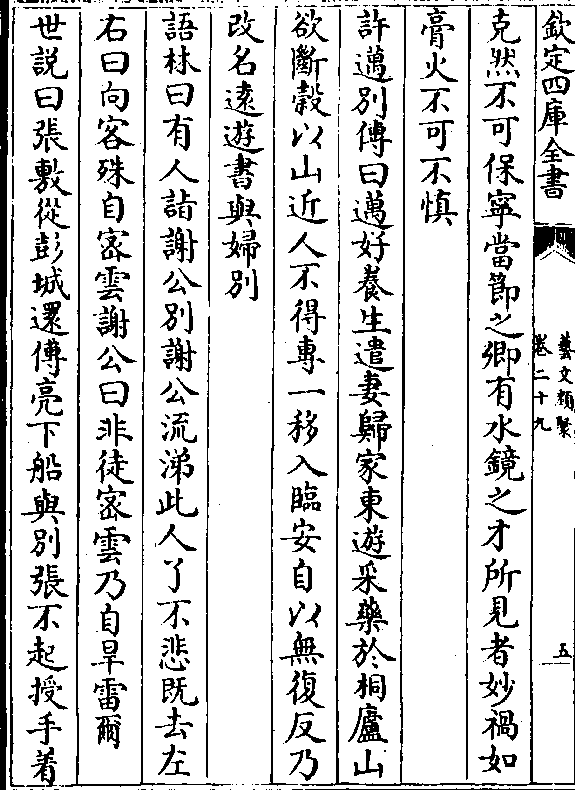 欽定四庫全書
藝文類聚
卷二十九
五
克然不可保寧當節之卿有水鏡之才所見者妙禍如
膏火不可不慎
許邁別傳曰邁好養生遣妻歸家東遊采藥於桐廬山
欲斷穀以山近人不得專一移入臨安自以無復反乃
改名遠遊書與婦別
語林曰有人詣謝公別謝公流涕此人了不悲既去左
右曰向客殊自宻雲謝公曰非徒宻雲乃自旱雷爾
世説曰張敷從彭城還傅亮下船與別張不起授手着